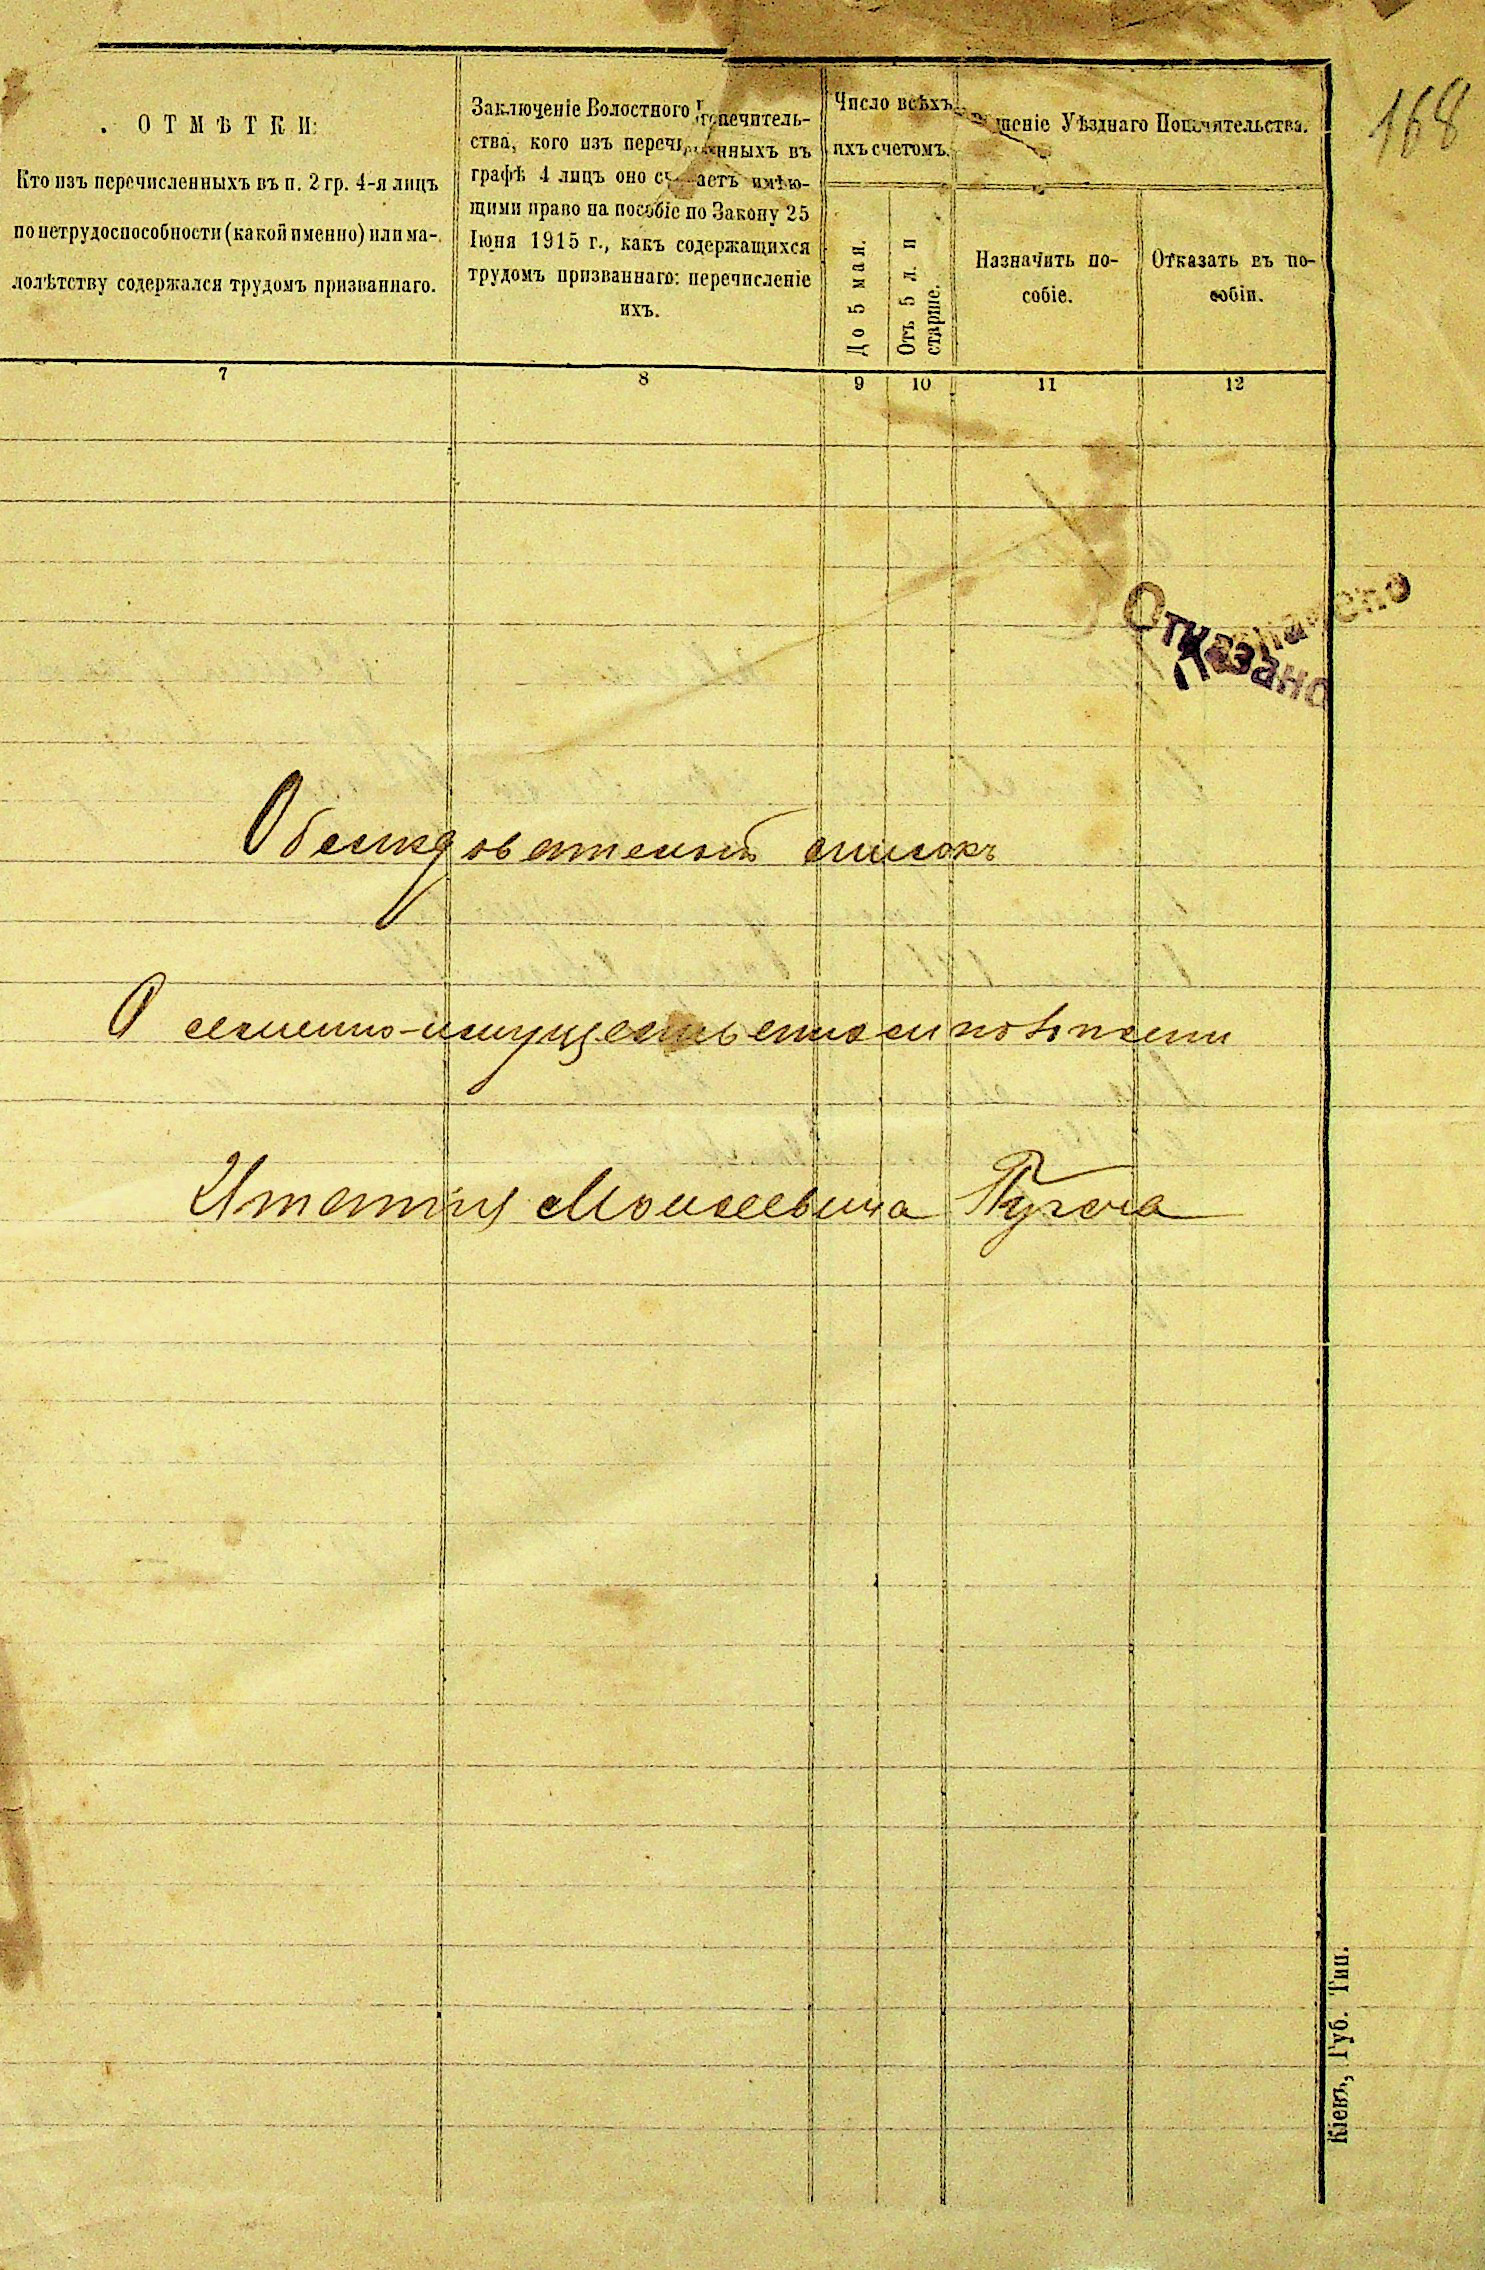 168
ОТМѢТКИ:
Кто изъ перечисленныхъ въ п. 2 гр. 4-я лицъ
по нетрудоспособности (какой именно) или ма-
лолѣтству содержался трудомъ призваннаго.
Заключеніе Волостного Попечитель-
ства, кого изъ перечисленныхъ въ
графѣ 4 лицъ оно считаетъ имѣю-
щими право на пособіе по Закону 25
Іюня 1915 г., какъ содержащихся
трудомъ призваннаго: перечисленіе
ихъ.
Число всѣхъ
ихъ счетомъ.
До 5 мая.
Отъ 5 л. и
старше.
Рѣшеніе Уѣзднаго Попечительства.
Назначить по-
собіе.
Отказать въ по-
собіи.
7 8 9 10 11 12
Назначено
Отказано
Обслѣдовательный списокъ
О семейно-имущественном
Игнатія Моисеевича Пугача
Кіевъ, Губ. Тип.